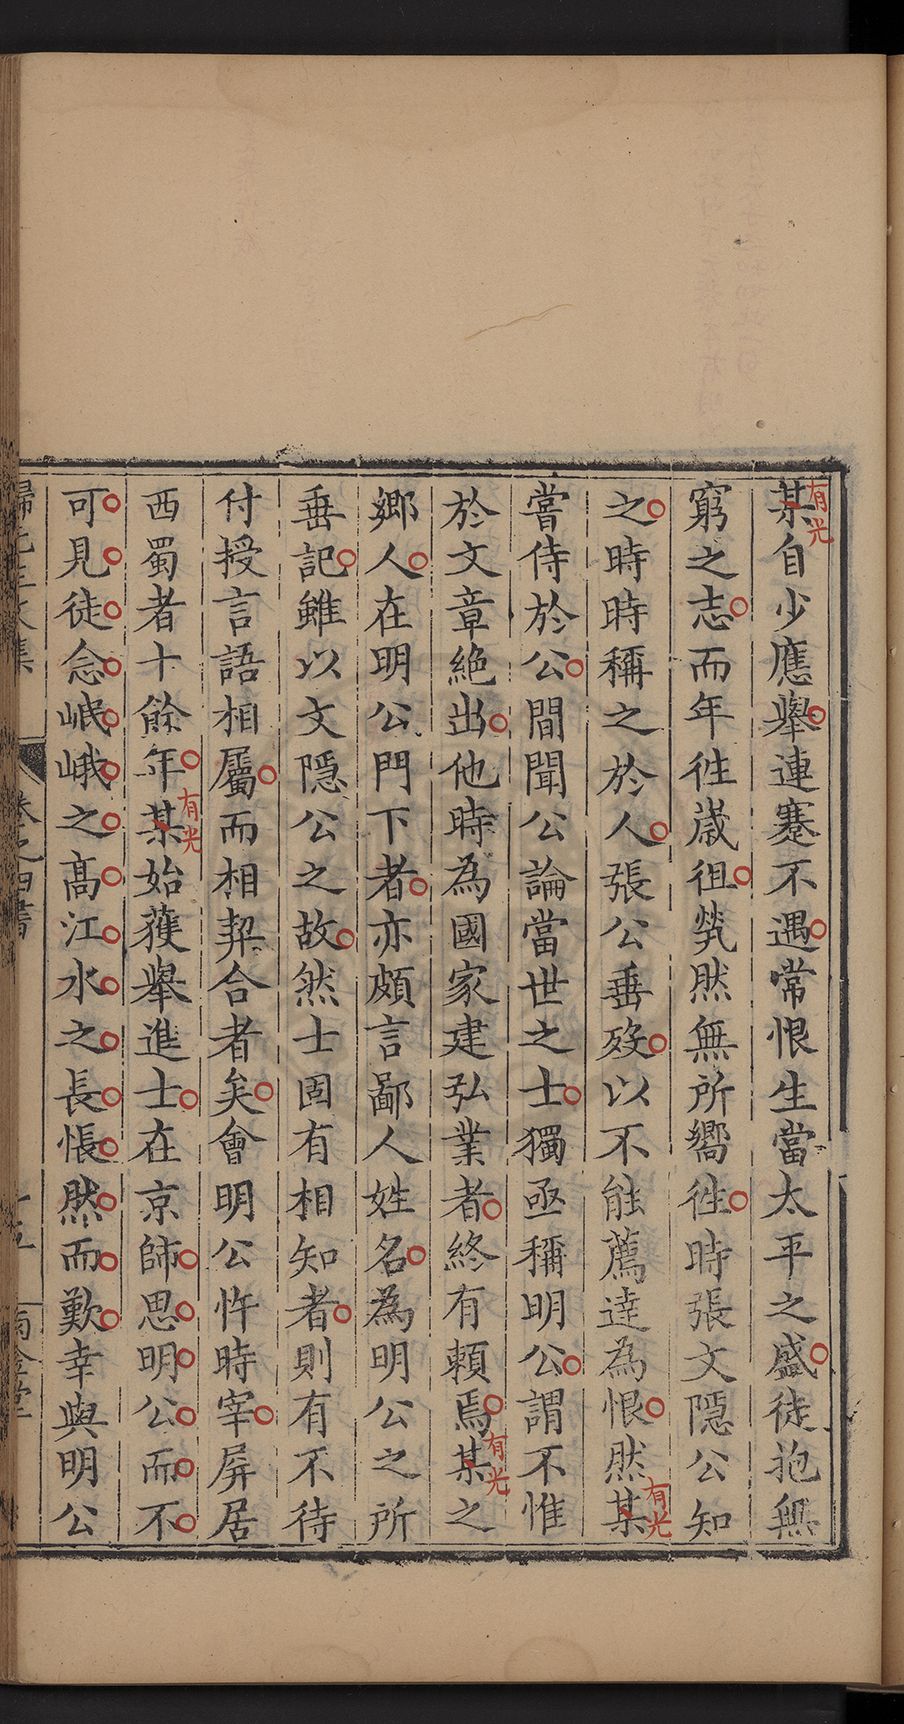 某自少應舉連蹇不遇常恨生當太平之盛徒抱無
有光
窮之志而年徃歲徂煢然無所嚮徃時張文隱公知
之時時稱之於人張公垂歿以不能薦達為恨然某
有光
嘗侍於公間聞公論當世之士獨亟稱明公謂不惟
於文章絶出他時為國家建弘業者終有賴焉某之
有光
鄉人在明公門下者亦頗言鄙人姓名為明公之所
垂記雖以文隱公之故然士固有相知者則有不待
付授言語相屬而相契合者矣會明公忤時宰屏居
西蜀者十餘年某始獲舉進士在京師思明公而不
有光
可見徒念岷峨之高江水之長悵然而歎幸與明公